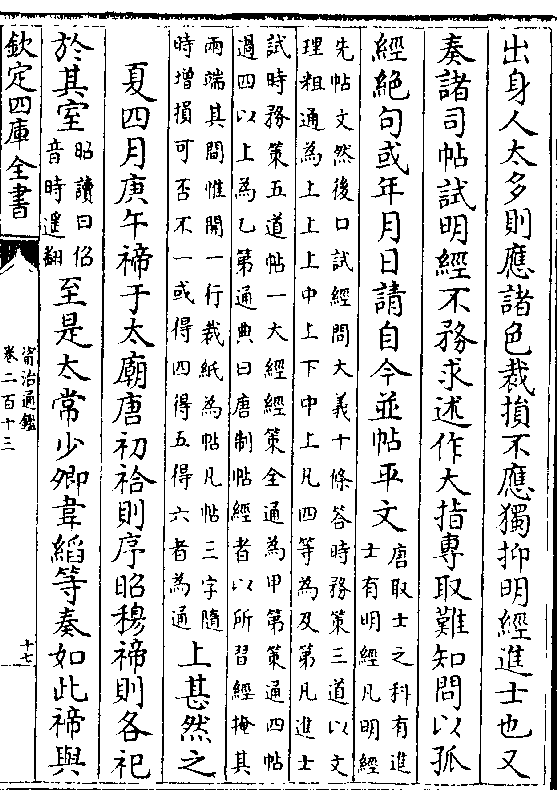 出身人太多則應諸色裁損不應獨抑明經進士也又
奏諸司帖試明經不務求述作大指專取難知問以孤
經絶句或年月日請自今並帖平文
唐取士之科有進
士有明經凡明經
先帖文然後口試經問大義十條答時務策三道以文
理粗通為上上上中上下中上凡四等為及第凡進士
試時務策五道帖一大經經策全通為甲第策通四帖
過四以上為乙第通典曰唐制帖經者以所習經掩其
兩端其間惟開一行裁紙為帖凡帖三字隨
時增損可否不一或得四得五得六者為通
上甚然之
夏四月庚午禘于太廟唐初祫則序昭穆禘則各祀
於其室
昭讀曰佋
音時遥翻
至是太常少卿韋縚等奏如此禘與
欽定四庫全書
資治通鑑
卷二百十三
十七